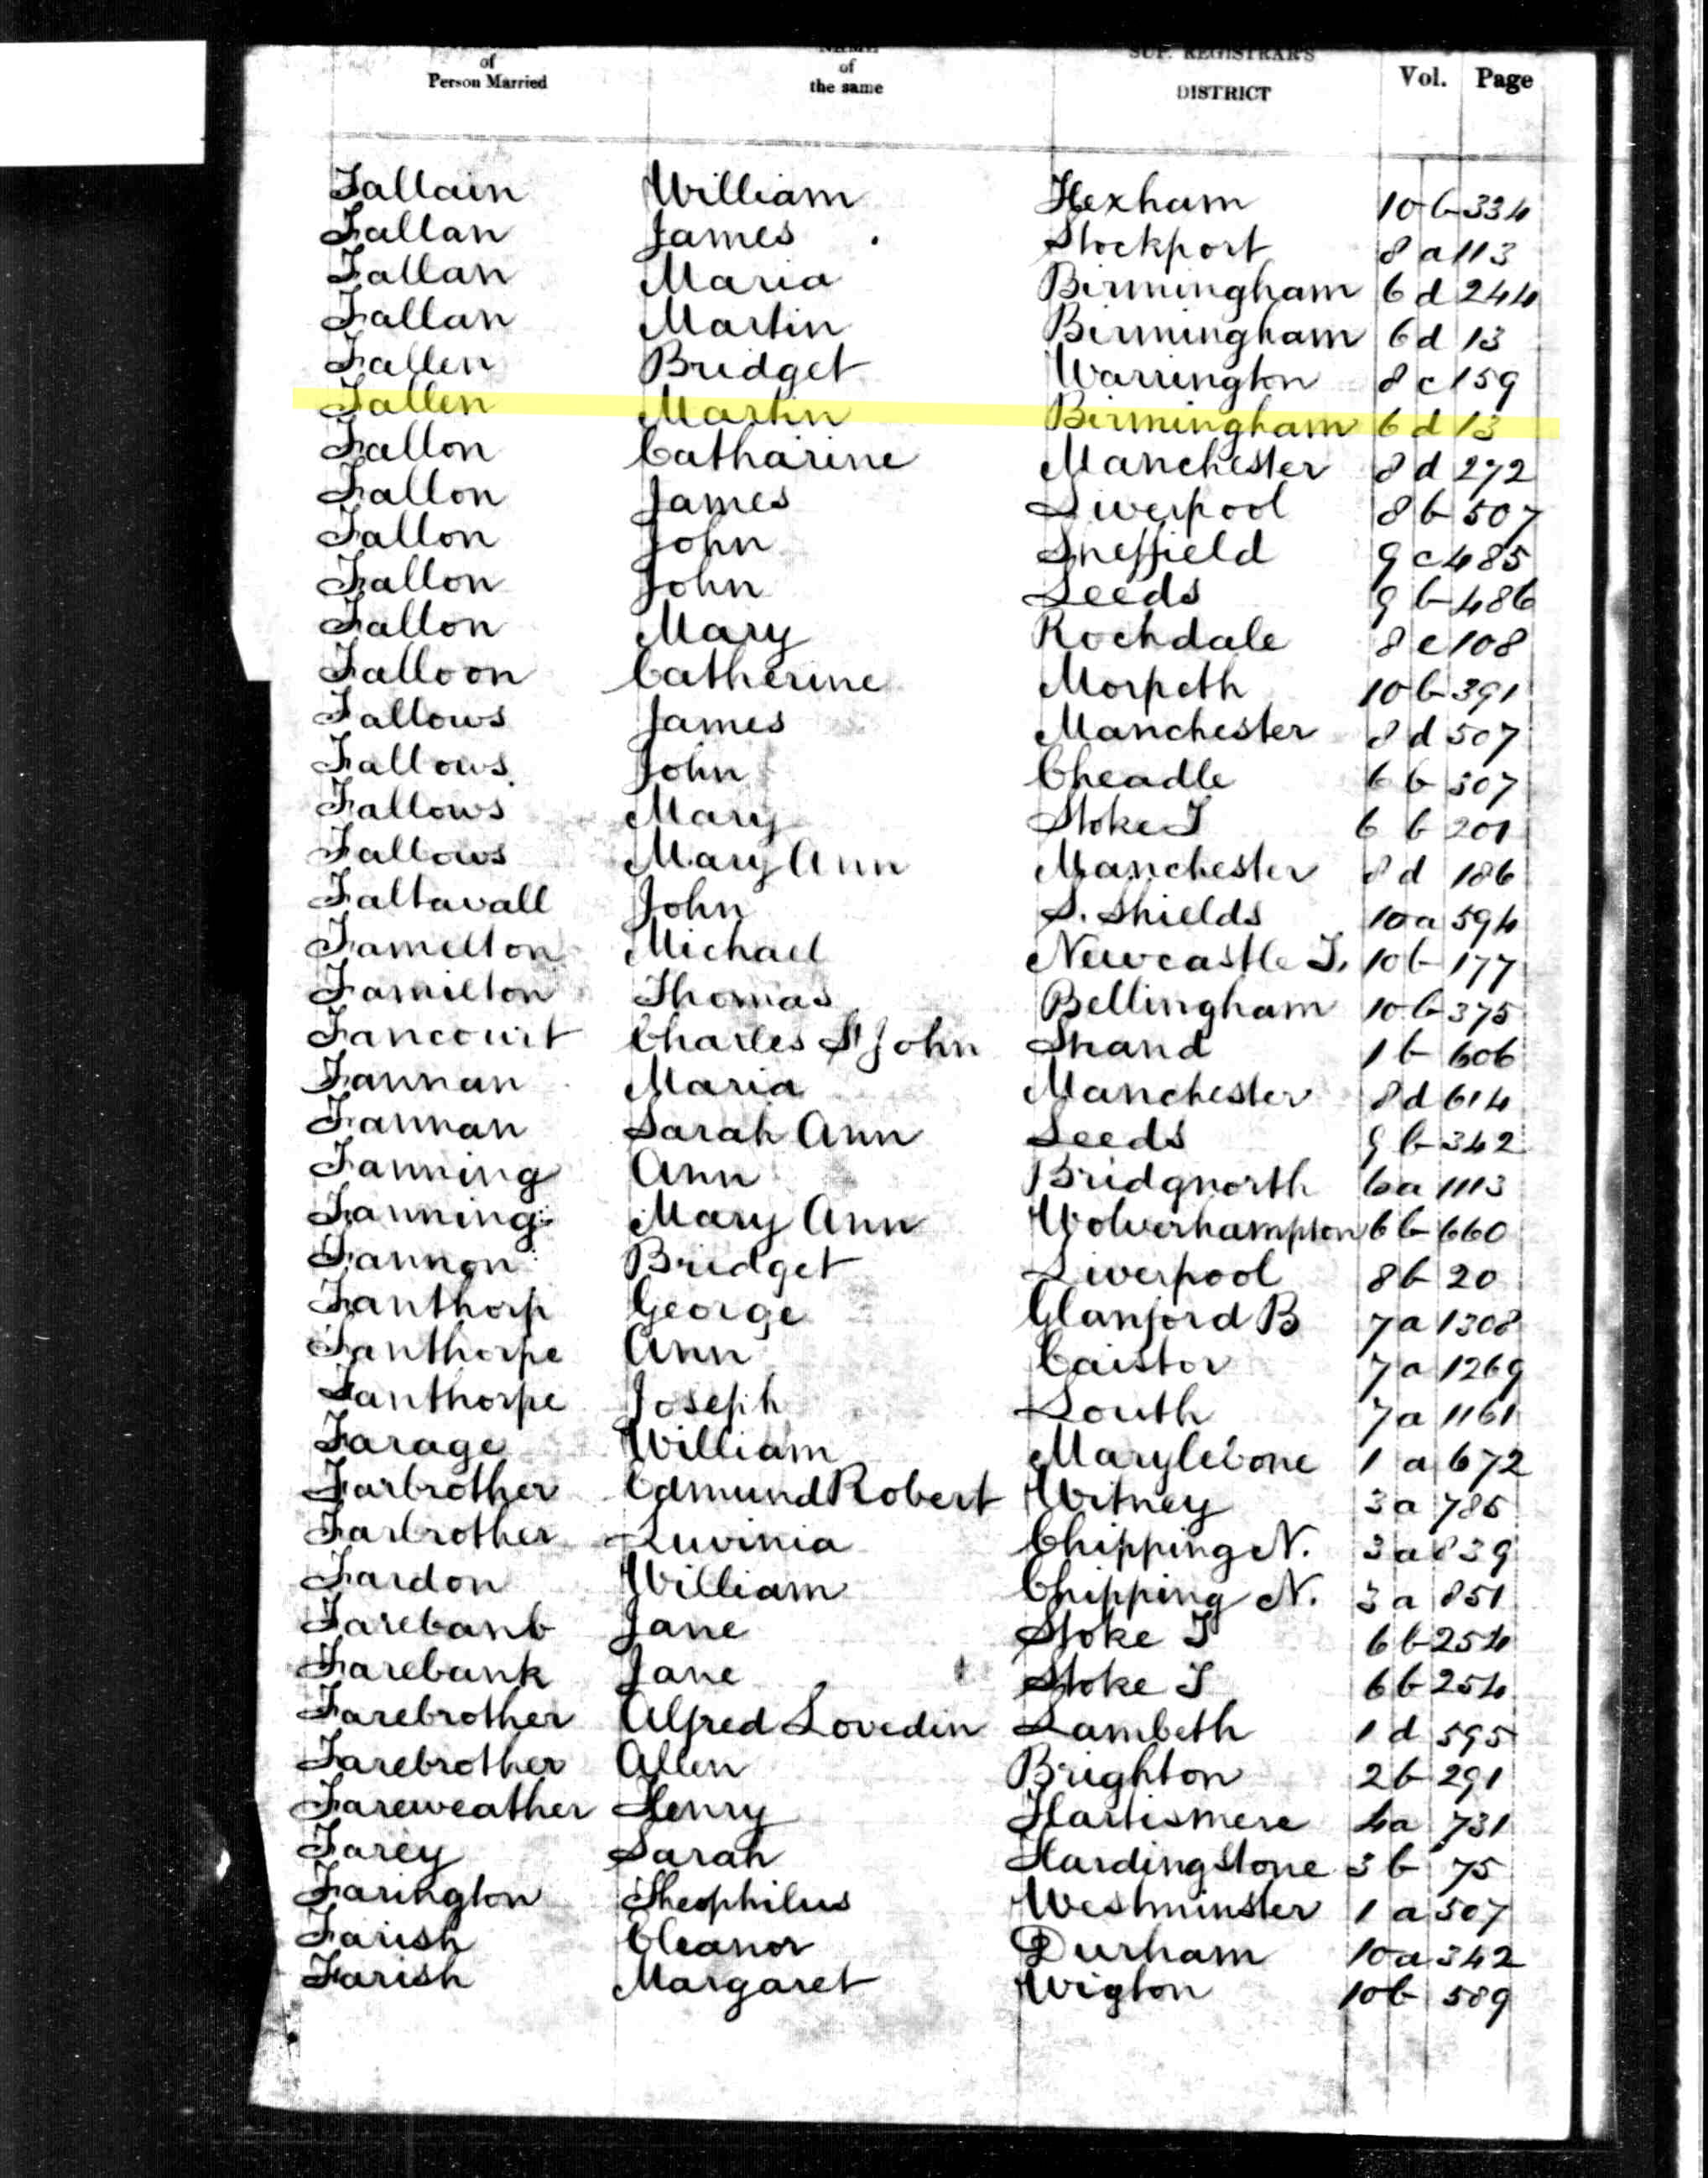 of
Person Married
NAME
of
the same
SUP. REGISTRAR'S
DISTRICT
Vol. Page
Fallain William Hexham 10 b 334
Fallan James Stockport 8 a 113
Fallan Maria Birmingham 6 d 244
Fallan Martin Birmingham 6 d 13
Fallen Bridget Warrington 8 c 159
Fallen Martin Birmingham 6 d 13
Fallon Catharine Manchester 8 d 272
Fallon James Liverpool 8 b 507
Fallon John Sheffield 9 c 485
Fallon John Leeds 9 b 486
Fallon Mary Rochdale 8 e 108
Falloon Catherine Morpeth 10 b 391
Fallows James Manchester 8 d 507
Fallows John Cheadle 6 b 307
Fallows Mary Stoke T 6 b 201
Fallows Mary Ann Manchester 8 d 186
Faltavall John S. Shields 10 a 594
Famelton Michael Newcastle T. 10 b 177
Familton Thomas Bellingham 10 b 375
Fancourt Charles St John Strand 1 b 606
Fannan Maria Manchester 8 d 614
Fannan Sarah Ann Leeds 9 b 342
Fanning Ann Bridgnorth 6 a 1113
Fanning Mary Ann Wolverhampton 6 b 660
Fannon Bridget Liverpool 8 b 20
Fanthorp George Glanford B 7 a 1308
Fanthorpe Ann Caistor 7 a 1269
Fanthorpe Joseph Louth 7 a 1161
Farage William Marylebone 1 a 672
Farbrother Edmund Robert Witney 3 a 785
Farbrother Luvinia Chipping N. 3 a 839
Fardon William Chipping N. 3 a 851
Farebanb Jane Stoke T 6 b 254
Farebank Jane Stoke T 6 b 254
Farebrother Alfred Lovedin Lambeth 1 d 595
Farebrother Allen Brighton 2 b 291
Fareweather Henry Hartismere 4 a 731
Farey Sarah Hardingstone 3 b 75
Farington Theophilus Westminster 1 a 507
Farish Eleanor Durham 10 a 342
Farish Margaret Wigton 10 b 589